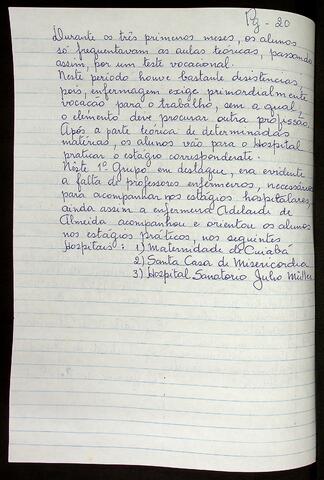 Pg - 20
Durante os três primeiros meses, os alunos
só frequentavam as aulas teóricas, passando
assim, por um teste vocacional.
Neste período houve bastante disistências,
pois, enfermagem exige primordialmente
vocação para o trabalho, sem a qual,
o elemento deve procurar outra profissão.
Após a parte teórica de determinadas
matérias, os alunos vão para o Hospital
praticar o estágio correspondente.
Nêste 1º Grupo em destaque, era evidente
a falta de professores enfermeiros, necessários
para acompanhar nos estágios hospitalares,
ainda assim a enfermeira Adelaide de
Almeida acompanhou e orientou os alunos
nos estágios práticos, nos seguintes
Hospitais: 1) Maternidade de Cuiabá
2) Santa Casa de Misericordia
3) Hospital Sanatorio Julio Müller